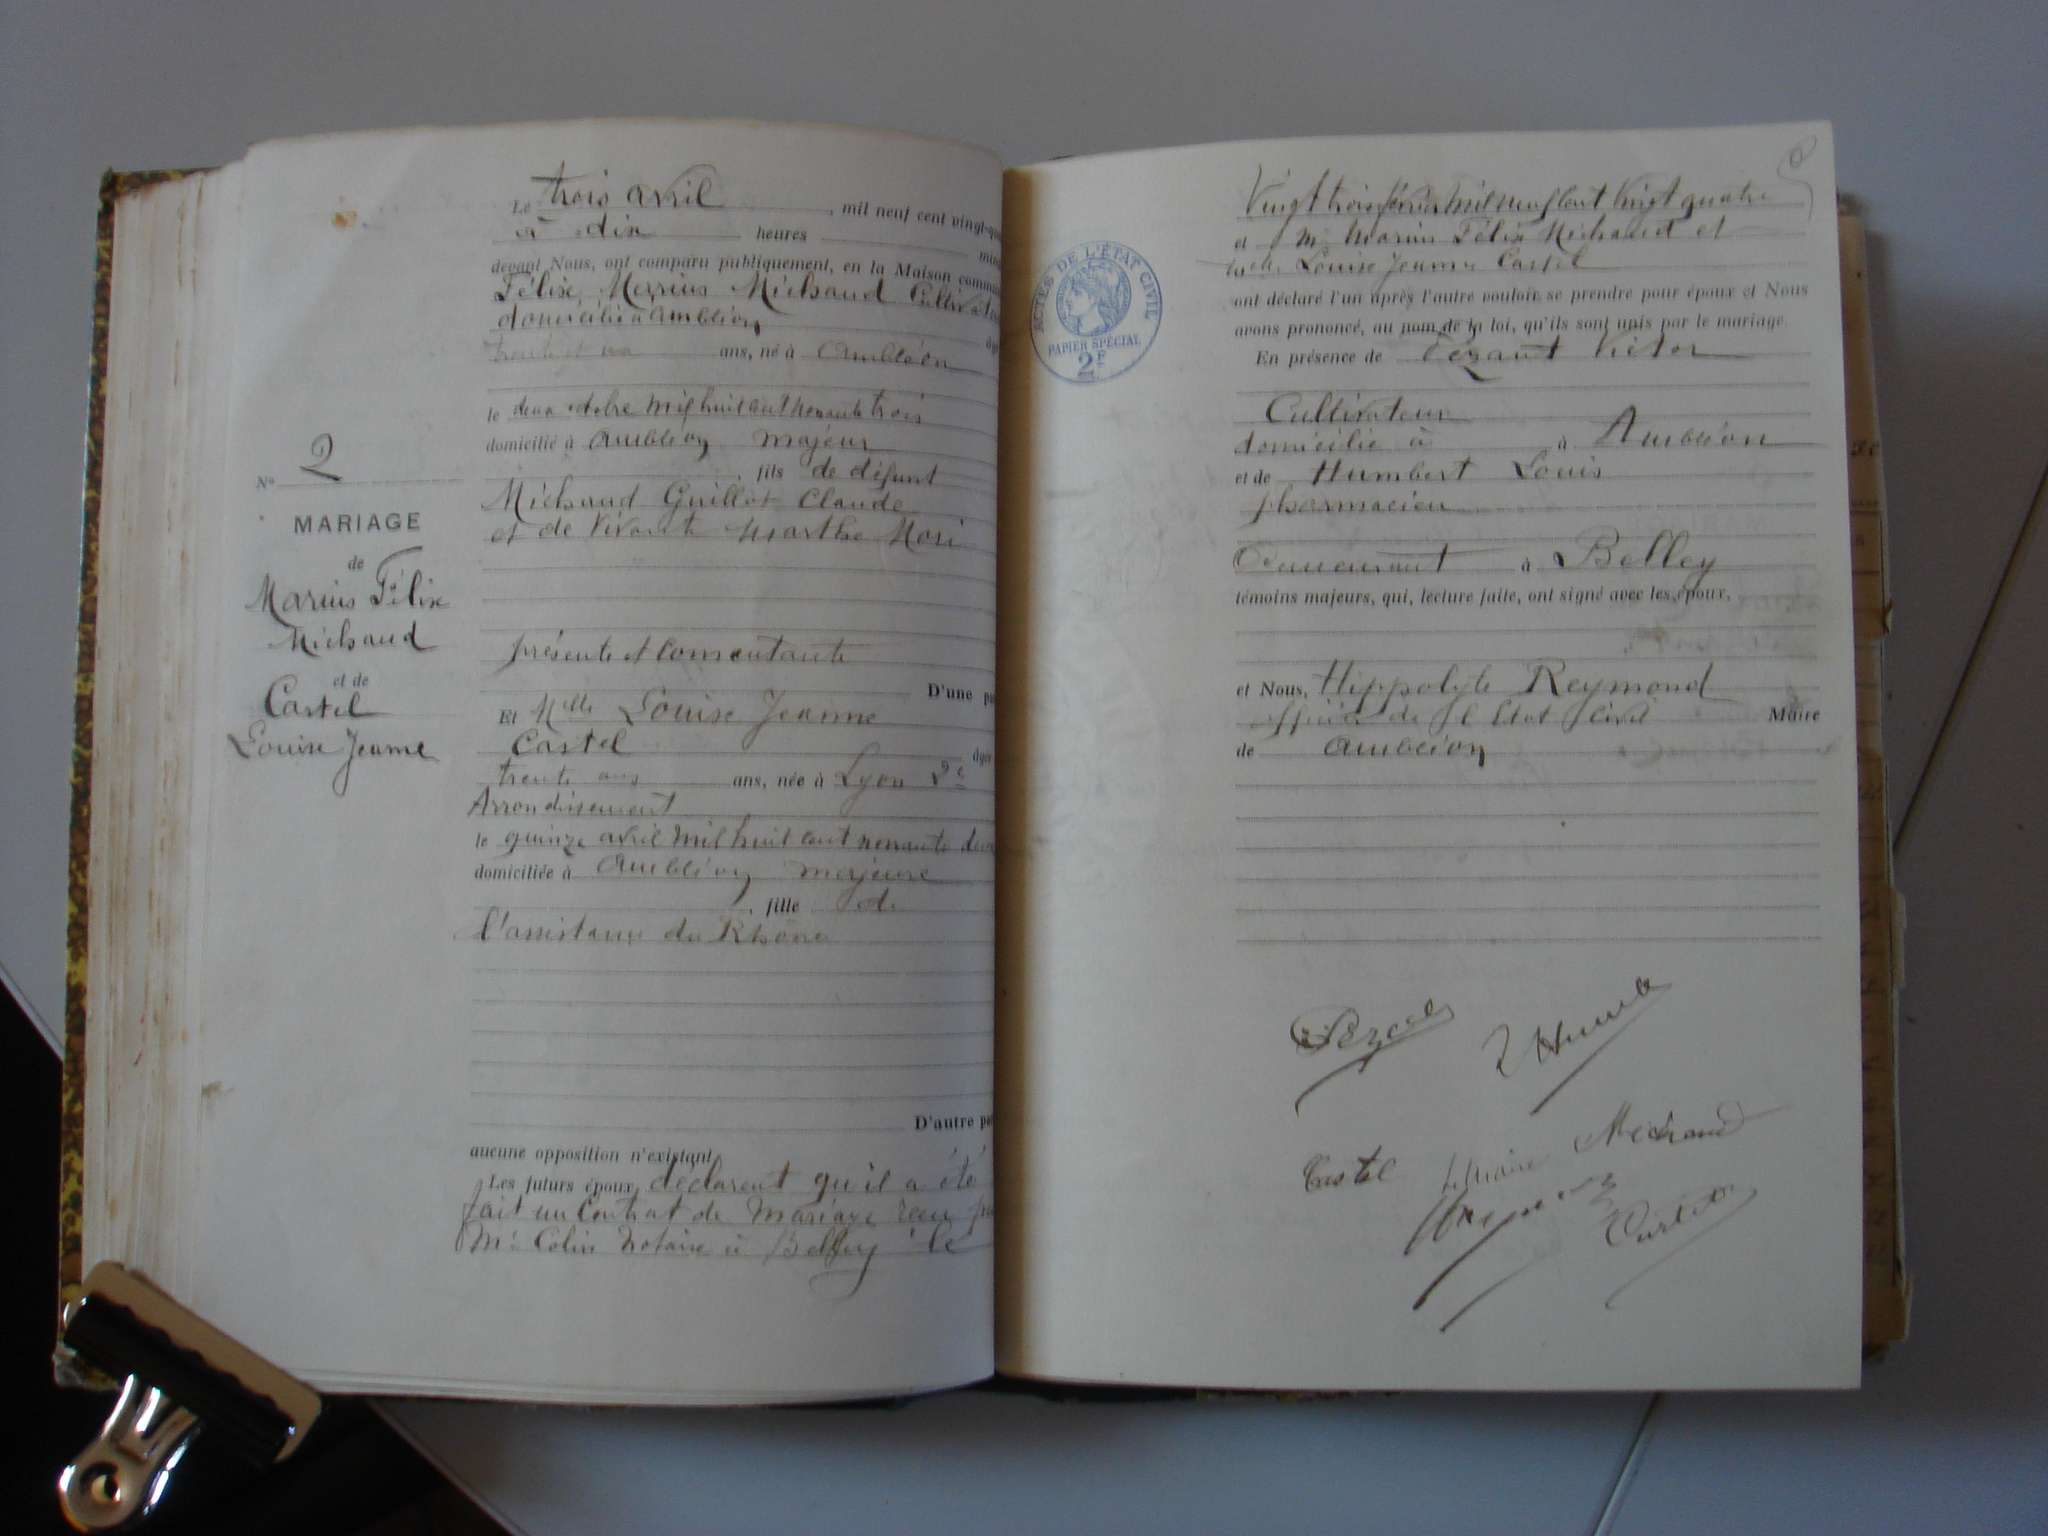 Le trois avril, mil neuf cent vingt-qu
à dix heures min
devant Nous, ont comparu publiquement, en la Maison commun
Félix Marius Michaud Cultivateu
domicilié à Ambléon âg
trente et un ans, né à Ambléon
le deux octobre mil huit cent nonante trois
domicilié à Ambléon majeur
, fils de défunt
Michaud Guillot Claude
et de vivante Marthe
présente et consentante
D'une pa
Et Melle Louise Jeanne
Castel âgée
trente ans ans, née à Lyon 2e
Arrondissement
le quinze avril mil huit cent nonante deux
domiciliée à Ambléon majeure
, fille de
l'assistance du Rhône
D'autre pa
aucune opposition n'existant
Les futurs époux déclarent qu'il a été
fait un Contrat de Mariage recu pa
Me Colin Notaire à Belley le
No 2
MARIAGE
de
Marius Félix
Michaud
et de
Castel
Louise Jeanne
ACTES DE L'ÉTAT CIVIL
PAPIER SPÉCIAL
2F
Vingt trois février mil neuf cent vingt quatre
et M. Marius Félix Michaud et
Louise Jeanne Castel
ont déclaré l'un après l'autre vouloir se prendre pour époux et Nous
avons prononcé, au nom de la loi, qu'ils sont unis par le mariage.
En présence de Victor
Cultivateur
domicilié à à Ambléon
et de Humbert Louis
pharmacien
Demeurant à Belley
témoins majeurs, qui, lecture faite, ont signé avec les époux,
et Nous, Hippolyte Reymond
officier de l'Etat Civil Maire
de Ambléon
Castel Michaud